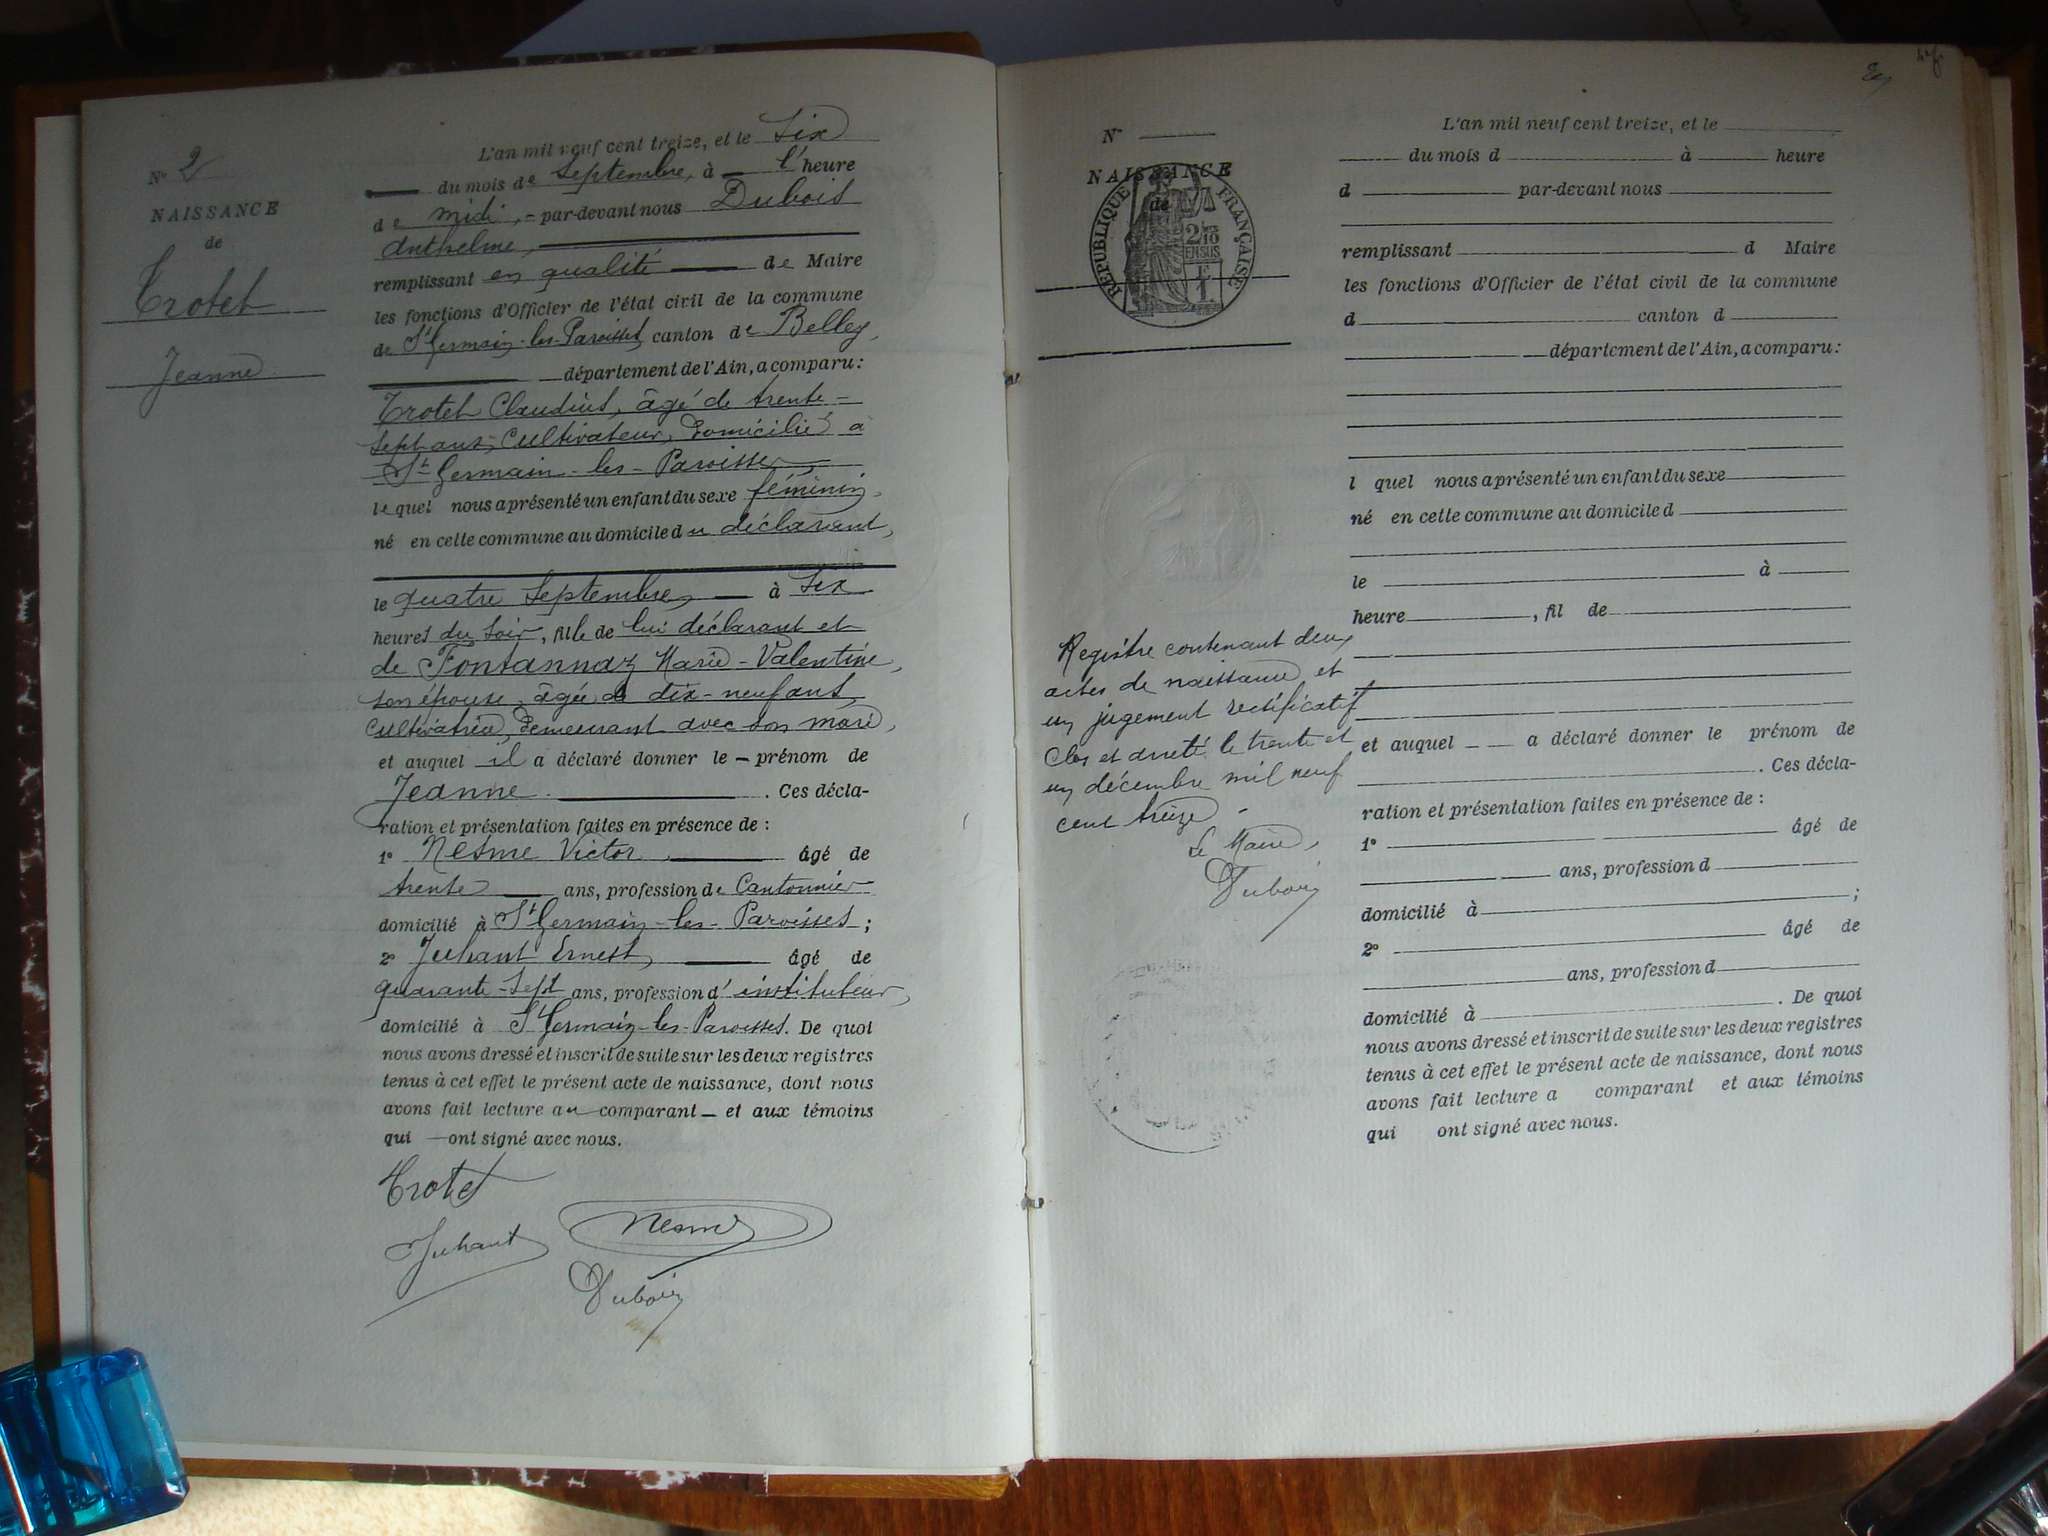 N° 2
NAISSANCE
de
Trotet
Jeanne
L'an mil neuf cent treize, et le Six
du mois de Septembre, à l'heure
de midi, par-devant nous Dubois
Anthelme,
remplissant en qualité de Maire
les fonctions d'Officier de l'état civil de la commune
de St Germain-les-Paroisses, canton de Belley,
département de l'Ain, a comparu :
Trotet Claudius, âgé de trente-
sept ans, Cultivateur, domicilié à
St Germain-les-Paroisses,
lequel nous a présenté un enfant du sexe féminin,
né en cette commune au domicile du déclarant,
le quatre Septembre, à Six
heures du soir, fille de lui déclarant et
de Fontannaz Marie-Valentine,
son épouse, âgée de dix-neuf ans,
Cultivatrice, demeurant avec son mari,
et auquel il a déclaré donner le prénom de
Jeanne. Ces décla-
ration et présentation faites en présence de :
1° Nesme Victor, âgé de
trente ans, profession de Cantonnier
domicilié à St Germain-les-Paroisses ;
2° Juhant Ernest, âgé de
quarante-sept ans, profession d'instituteur,
domicilié à St Germain-les-Paroisses. De quoi
nous avons dressé et inscrit de suite sur les deux registres
tenus à cet effet le présent acte de naissance, dont nous
avons fait lecture au comparant et aux témoins
qui ont signé avec nous.
Trotet
Juhant Nesme
Dubois
N°
NAISSANCE
de
REPUBLIQUE FRANÇAISE
2/10 EN SUS
Registre contenant deux
actes de naissance et
un jugement rectificatif
Clos et arrêté le trente et
un décembre mil neuf
cent treize
Le Maire,
Dubois
L'an mil neuf cent treize, et le
du mois d à heure
d par-devant nous
remplissant d Maire
les fonctions d'Officier de l'état civil de la commune
d canton d
département de l'Ain, a comparu :
l quel nous a présenté un enfant du sexe
né en cette commune au domicile d
le à
heure , fil de
et auquel a déclaré donner le prénom de
. Ces décla-
ration et présentation faites en présence de :
1° âgé de
ans, profession d
domicilié à ;
2° âgé de
ans, profession d
domicilié à . De quoi
nous avons dressé et inscrit de suite sur les deux registres
tenus à cet effet le présent acte de naissance, dont nous
avons fait lecture a comparant et aux témoins
qui ont signé avec nous.